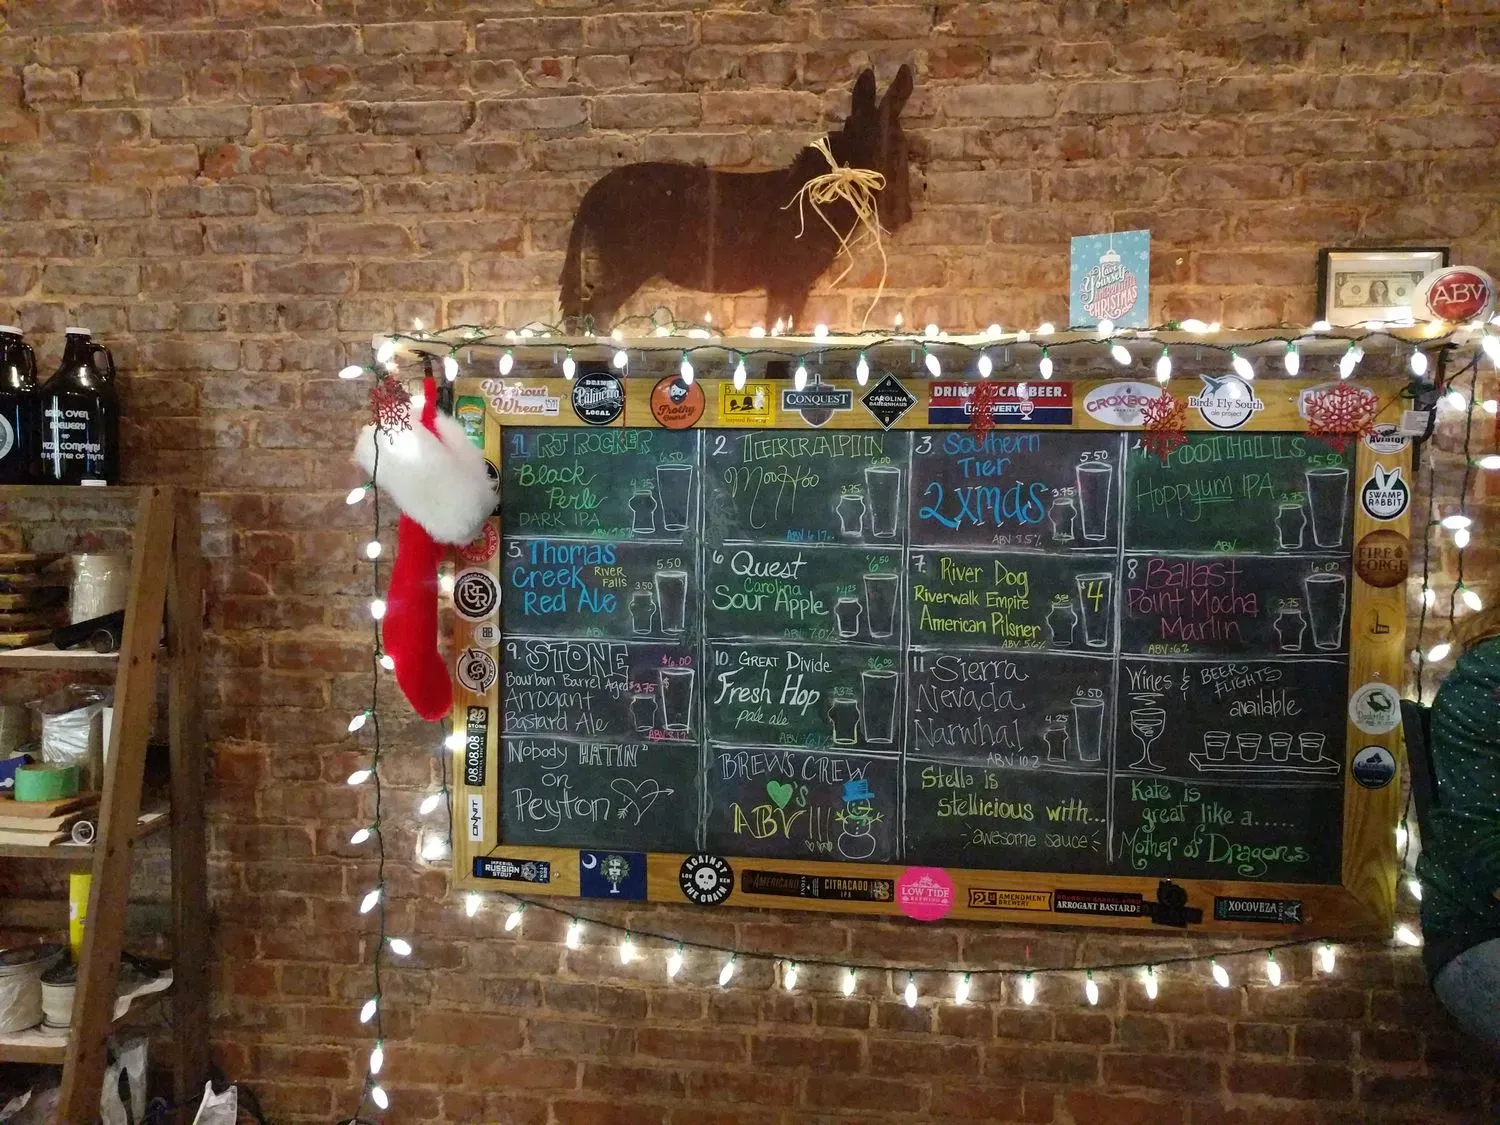 Have
Yourself
CHRISTMAS
ABV
BRICK OVEN
BREWERY
PIZZA COMPANY
A MATTER OF TASTE
Without
Wheat
DRINK
Palmetto
LOCAL
Frothy
Beard
CONQUEST
CAROLINA
BAUERNHAUS
DRINK LOCAL BEER.
BREWERY
CROXBON
Birds Fly South
ale project
Aviator
SWAMP
RABBIT
FIRE
FORGE
1. RJ ROCKER
Black
Perle
DARK IPA
4.25
6.50
2. TERRAPIN
MooHoo
3.75
6.00
3. Southern
Tier
2XMAS
3.75
5.50
ABV 8.5%
4. FOOTHILLS
Hoppyum IPA
3.75
$5.50
ABV
5. Thomas
Creek River
Falls
Red Ale
3.50
5.50
ABV
6 Quest
Carolina
Sour Apple
$4.25
$6.50
ABV 7.0%
7. River Dog
Riverwalk Empire
American Pilsner
$4
ABV 5.6%
8 Ballast
Point Mocha
Marlin
3.75
6.00
ABV: 6%
9. STONE
Bourbon Barrel Aged
Arrogant
Bastard Ale
$3.75
$6.00
10. GREAT Divide
Fresh Hop
pale ale
$3.75
$6.00
11 Sierra
Nevada
Narwhal
4.25
6.50
ABV 10.2
Wines & BEER
FLIGHTS
available
Nobody HATIN"
on
Peyton
BREWS CREW
'S
ABV!!!
Stella is
stellicious with...
- awesome sauce -
Kate is
great like a.....
Mother of Dragons
STONE
08.08.08
ONNIT
IMPERIAL
RUSSIAN
STOUT
AGAINST
LOU KEN
THE GRAIN
AMERICANO
STONE
CITRACADO
IPA
LOW TIDE
BREWING
21ST AMENDMENT
BREWERY
ARROGANT BASTARD
XOCOVEZA